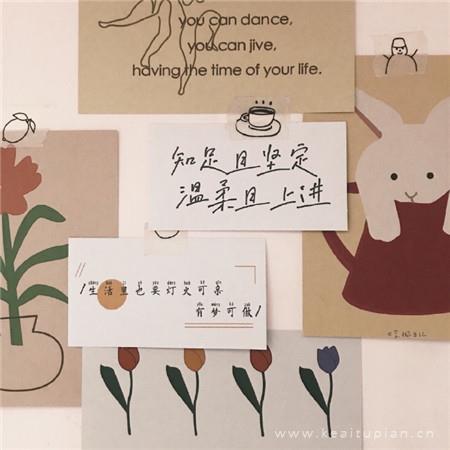 you can dance,
you can jive,
having the time of your life.
知足且坚定
温柔且上进
生活里也要灯火可亲
有梦可做
www.keaitupian.cn